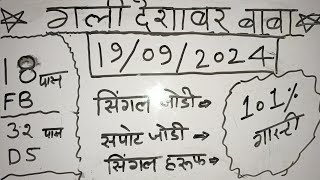 गली देशावर बाबा
19/09/2024
18 पास
FB
32 पास
DS
सिंगल जोडी →
सपोट जोडी →
सिंगल हरुफ →
101%
गारन्टी